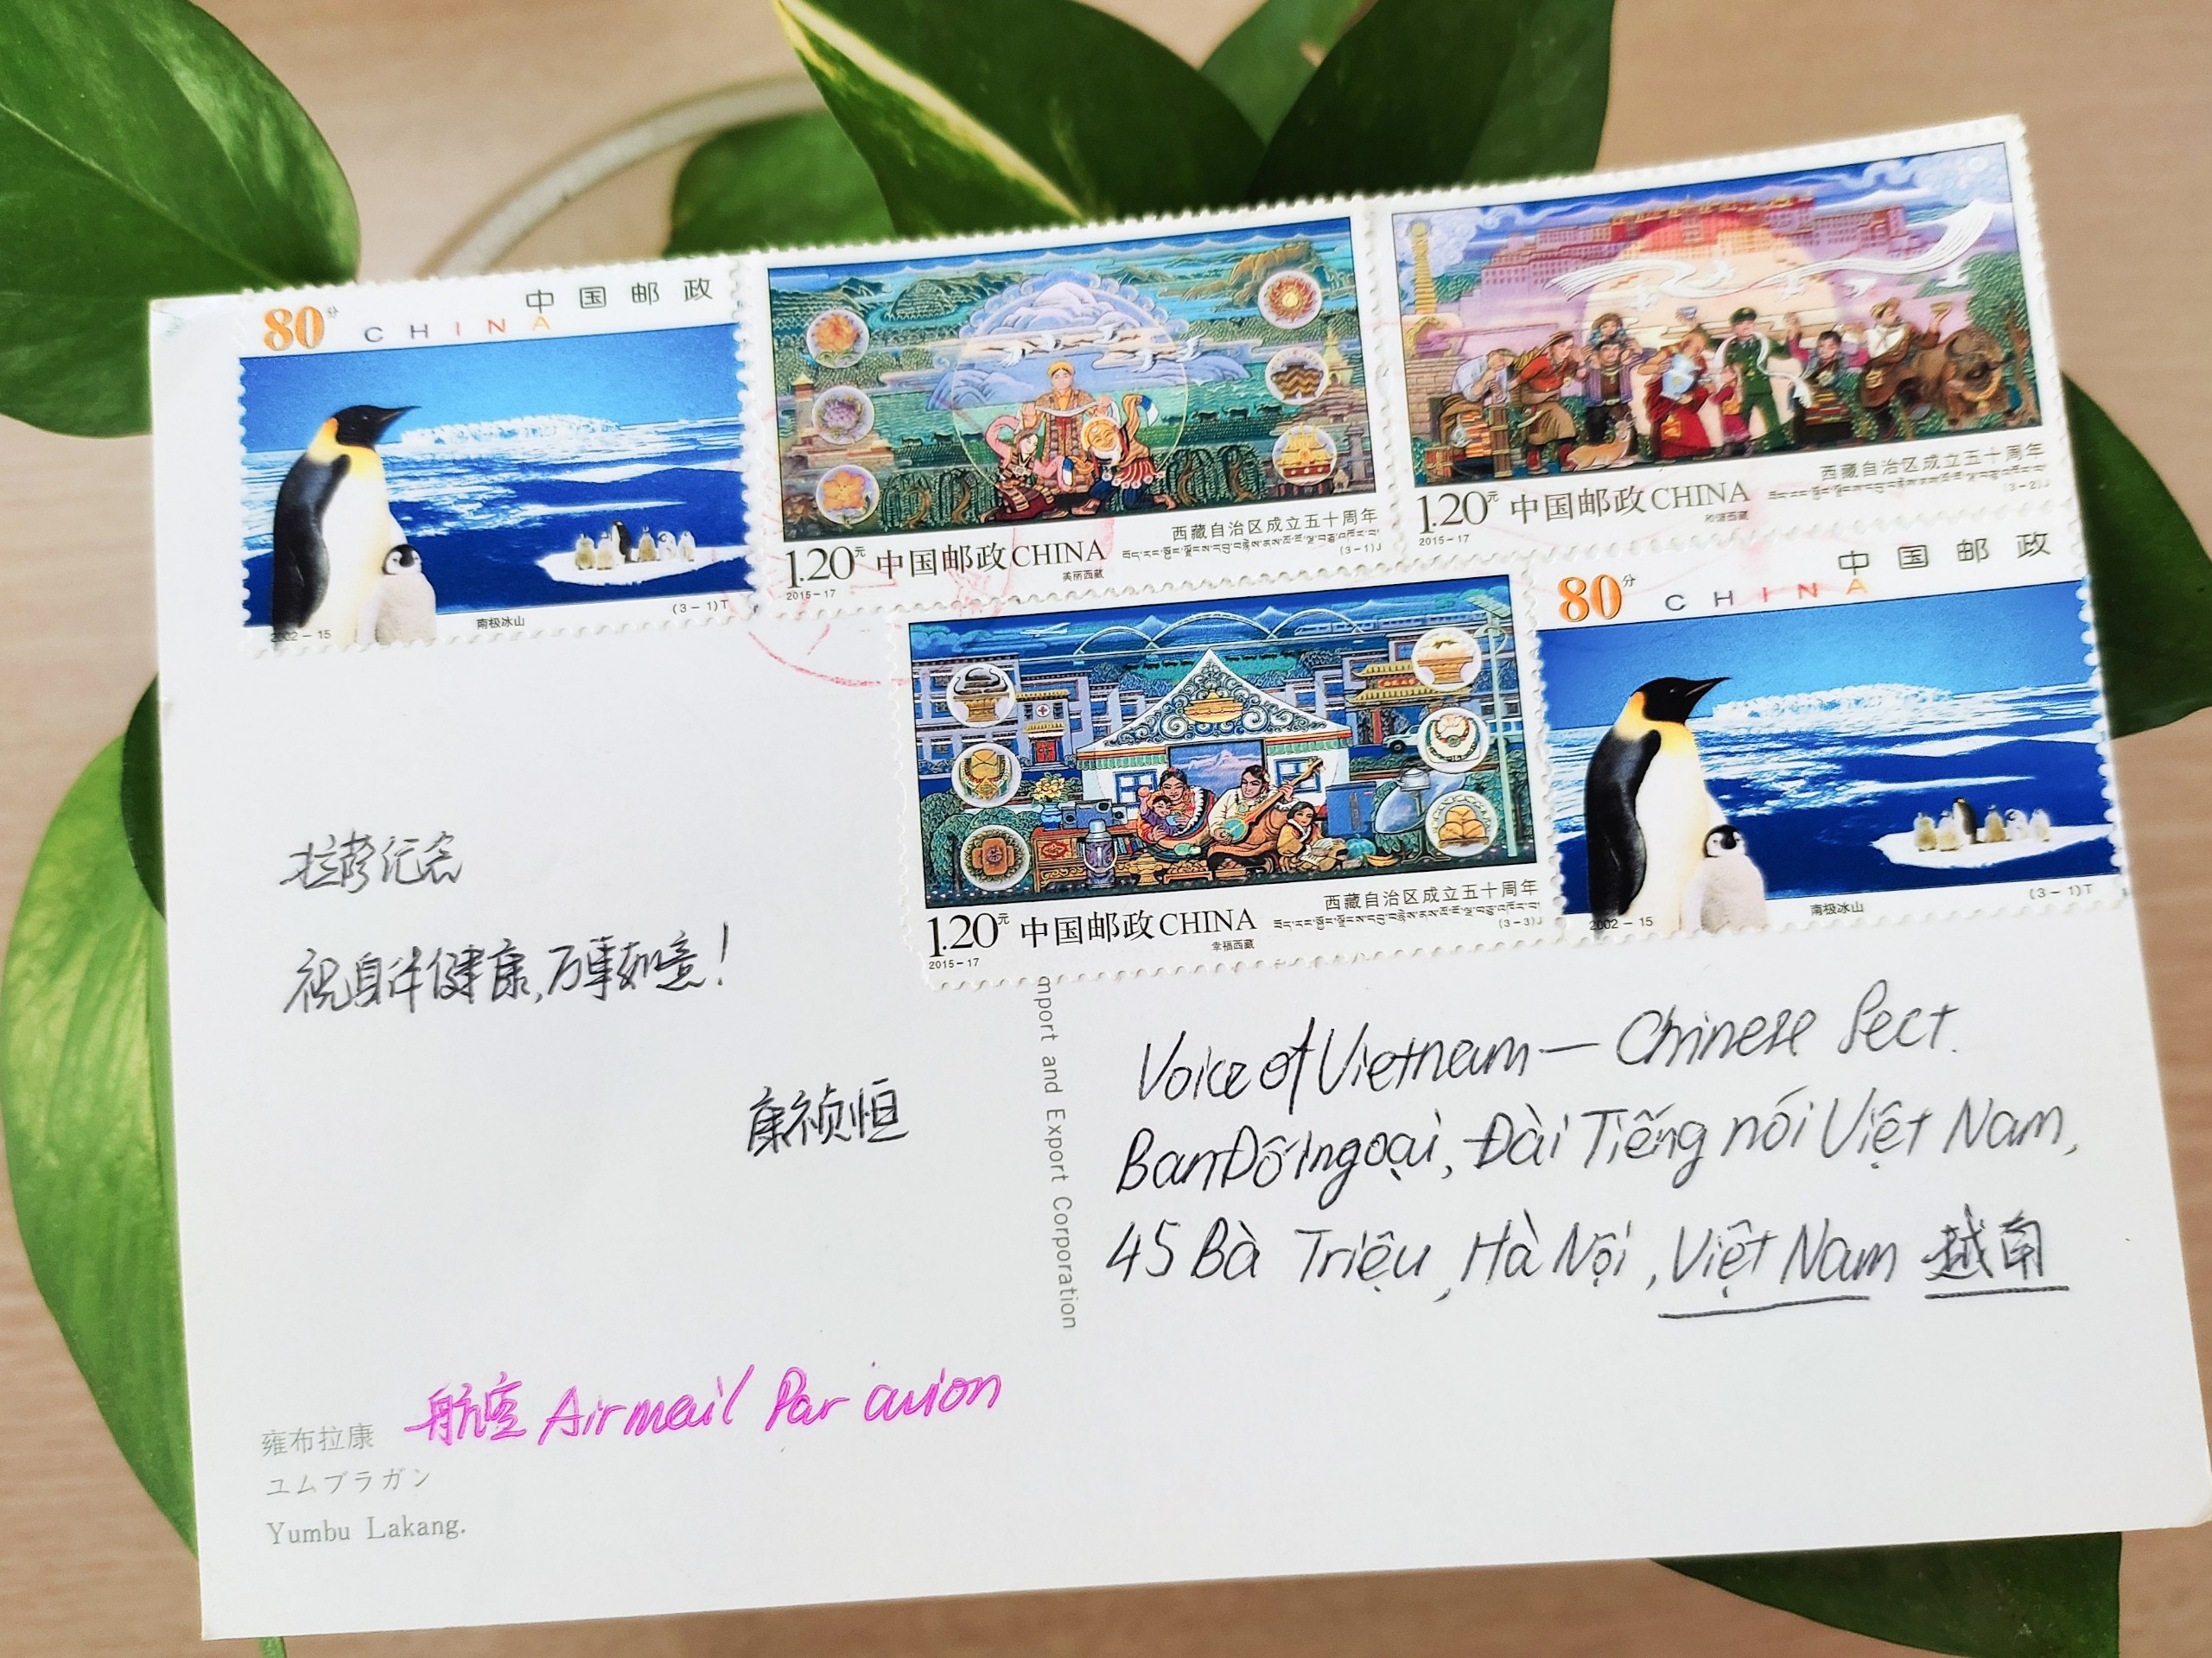 80分
中国邮政
CHINA
2002-15
南极冰山
(3-1)T
西藏自治区成立五十周年
1.20元 中国邮政CHINA
(3-1)J
2015-17
美丽西藏
西藏自治区成立五十周年
1.20元 中国邮政CHINA
(3-2)J
2015-17
和谐西藏
西藏自治区成立五十周年
1.20元 中国邮政CHINA
(3-3)J
2015-17
幸福西藏
80分
中国邮政
CHINA
2002-15
南极冰山
(3-1)T
纪念
祝身体健康,万事如意!
康祯恒
mport and Export Corporation
Voice of Vietnam — Chinese Sect.
Ban Đối ngoại, Đài Tiếng nói Việt Nam,
45 Bà Triệu, Hà Nội, Việt Nam 越南
航空 Airmail Par avion
雍布拉康
ユムブラガン
Yumbu Lakang.